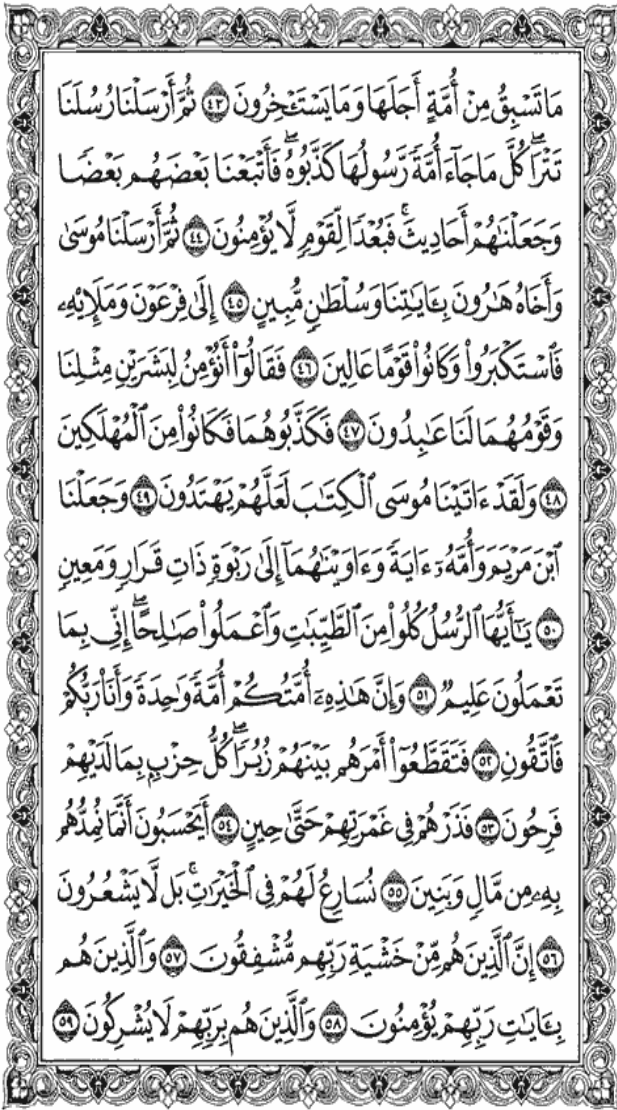 مَا تَسْبِقُ مِنْ أُمَّةٍ أَجَلَهَا وَمَا يَسْتَـْٔخِرُونَ ٤٣ ثُمَّ أَرْسَلْنَا رُسُلَنَا
تَتْرَاۖ كُلَّ مَا جَآءَ أُمَّةً رَّسُولُهَا كَذَّبُوهُۖ فَأَتْبَعْنَا بَعْضَهُم بَعْضًا
وَجَعَلْنَٰهُمْ أَحَادِيثَۚ فَبُعْدًا لِّقَوْمٍ لَّا يُؤْمِنُونَ ٤٤ ثُمَّ أَرْسَلْنَا مُوسَىٰ
وَأَخَاهُ هَٰرُونَ بِـَٔايَٰتِنَا وَسُلْطَٰنٍ مُّبِينٍ ٤٥ إِلَىٰ فِرْعَوْنَ وَمَلَإِي۟هِۦ
فَٱسْتَكْبَرُوا۟ وَكَانُوا۟ قَوْمًا عَالِينَ ٤٦ فَقَالُوٓا۟ أَنُؤْمِنُ لِبَشَرَيْنِ مِثْلِنَا
وَقَوْمُهُمَا لَنَا عَٰبِدُونَ ٤٧ فَكَذَّبُوهُمَا فَكَانُوا۟ مِنَ ٱلْمُهْلَكِينَ
٤٨ وَلَقَدْ ءَاتَيْنَا مُوسَى ٱلْكِتَٰبَ لَعَلَّهُمْ يَهْتَدُونَ ٤٩ وَجَعَلْنَا
ٱبْنَ مَرْيَمَ وَأُمَّهُۥٓ ءَايَةً وَءَاوَيْنَٰهُمَآ إِلَىٰ رَبْوَةٍ ذَاتِ قَرَارٍ وَمَعِينٍ
٥٠ يَٰٓأَيُّهَا ٱلرُّسُلُ كُلُوا۟ مِنَ ٱلطَّيِّبَٰتِ وَٱعْمَلُوا۟ صَٰلِحًاۖ إِنِّى بِمَا
تَعْمَلُونَ عَلِيمٌ ٥١ وَإِنَّ هَٰذِهِۦٓ أُمَّتُكُمْ أُمَّةً وَٰحِدَةً وَأَنَا۠ رَبُّكُمْ
فَٱتَّقُونِ ٥٢ فَتَقَطَّعُوٓا۟ أَمْرَهُم بَيْنَهُمْ زُبُرًاۖ كُلُّ حِزْبٍۭ بِمَا لَدَيْهِمْ
فَرِحُونَ ٥٣ فَذَرْهُمْ فِى غَمْرَتِهِمْ حَتَّىٰ حِينٍ ٥٤ أَيَحْسَبُونَ أَنَّمَا نُمِدُّهُم
بِهِۦ مِن مَّالٍ وَبَنِينَ ٥٥ نُسَارِعُ لَهُمْ فِى ٱلْخَيْرَٰتِۚ بَل لَّا يَشْعُرُونَ
٥٦ إِنَّ ٱلَّذِينَ هُم مِّنْ خَشْيَةِ رَبِّهِم مُّشْفِقُونَ ٥٧ وَٱلَّذِينَ هُم
بِـَٔايَٰتِ رَبِّهِمْ يُؤْمِنُونَ ٥٨ وَٱلَّذِينَ هُم بِرَبِّهِمْ لَا يُشْرِكُونَ ٥٩